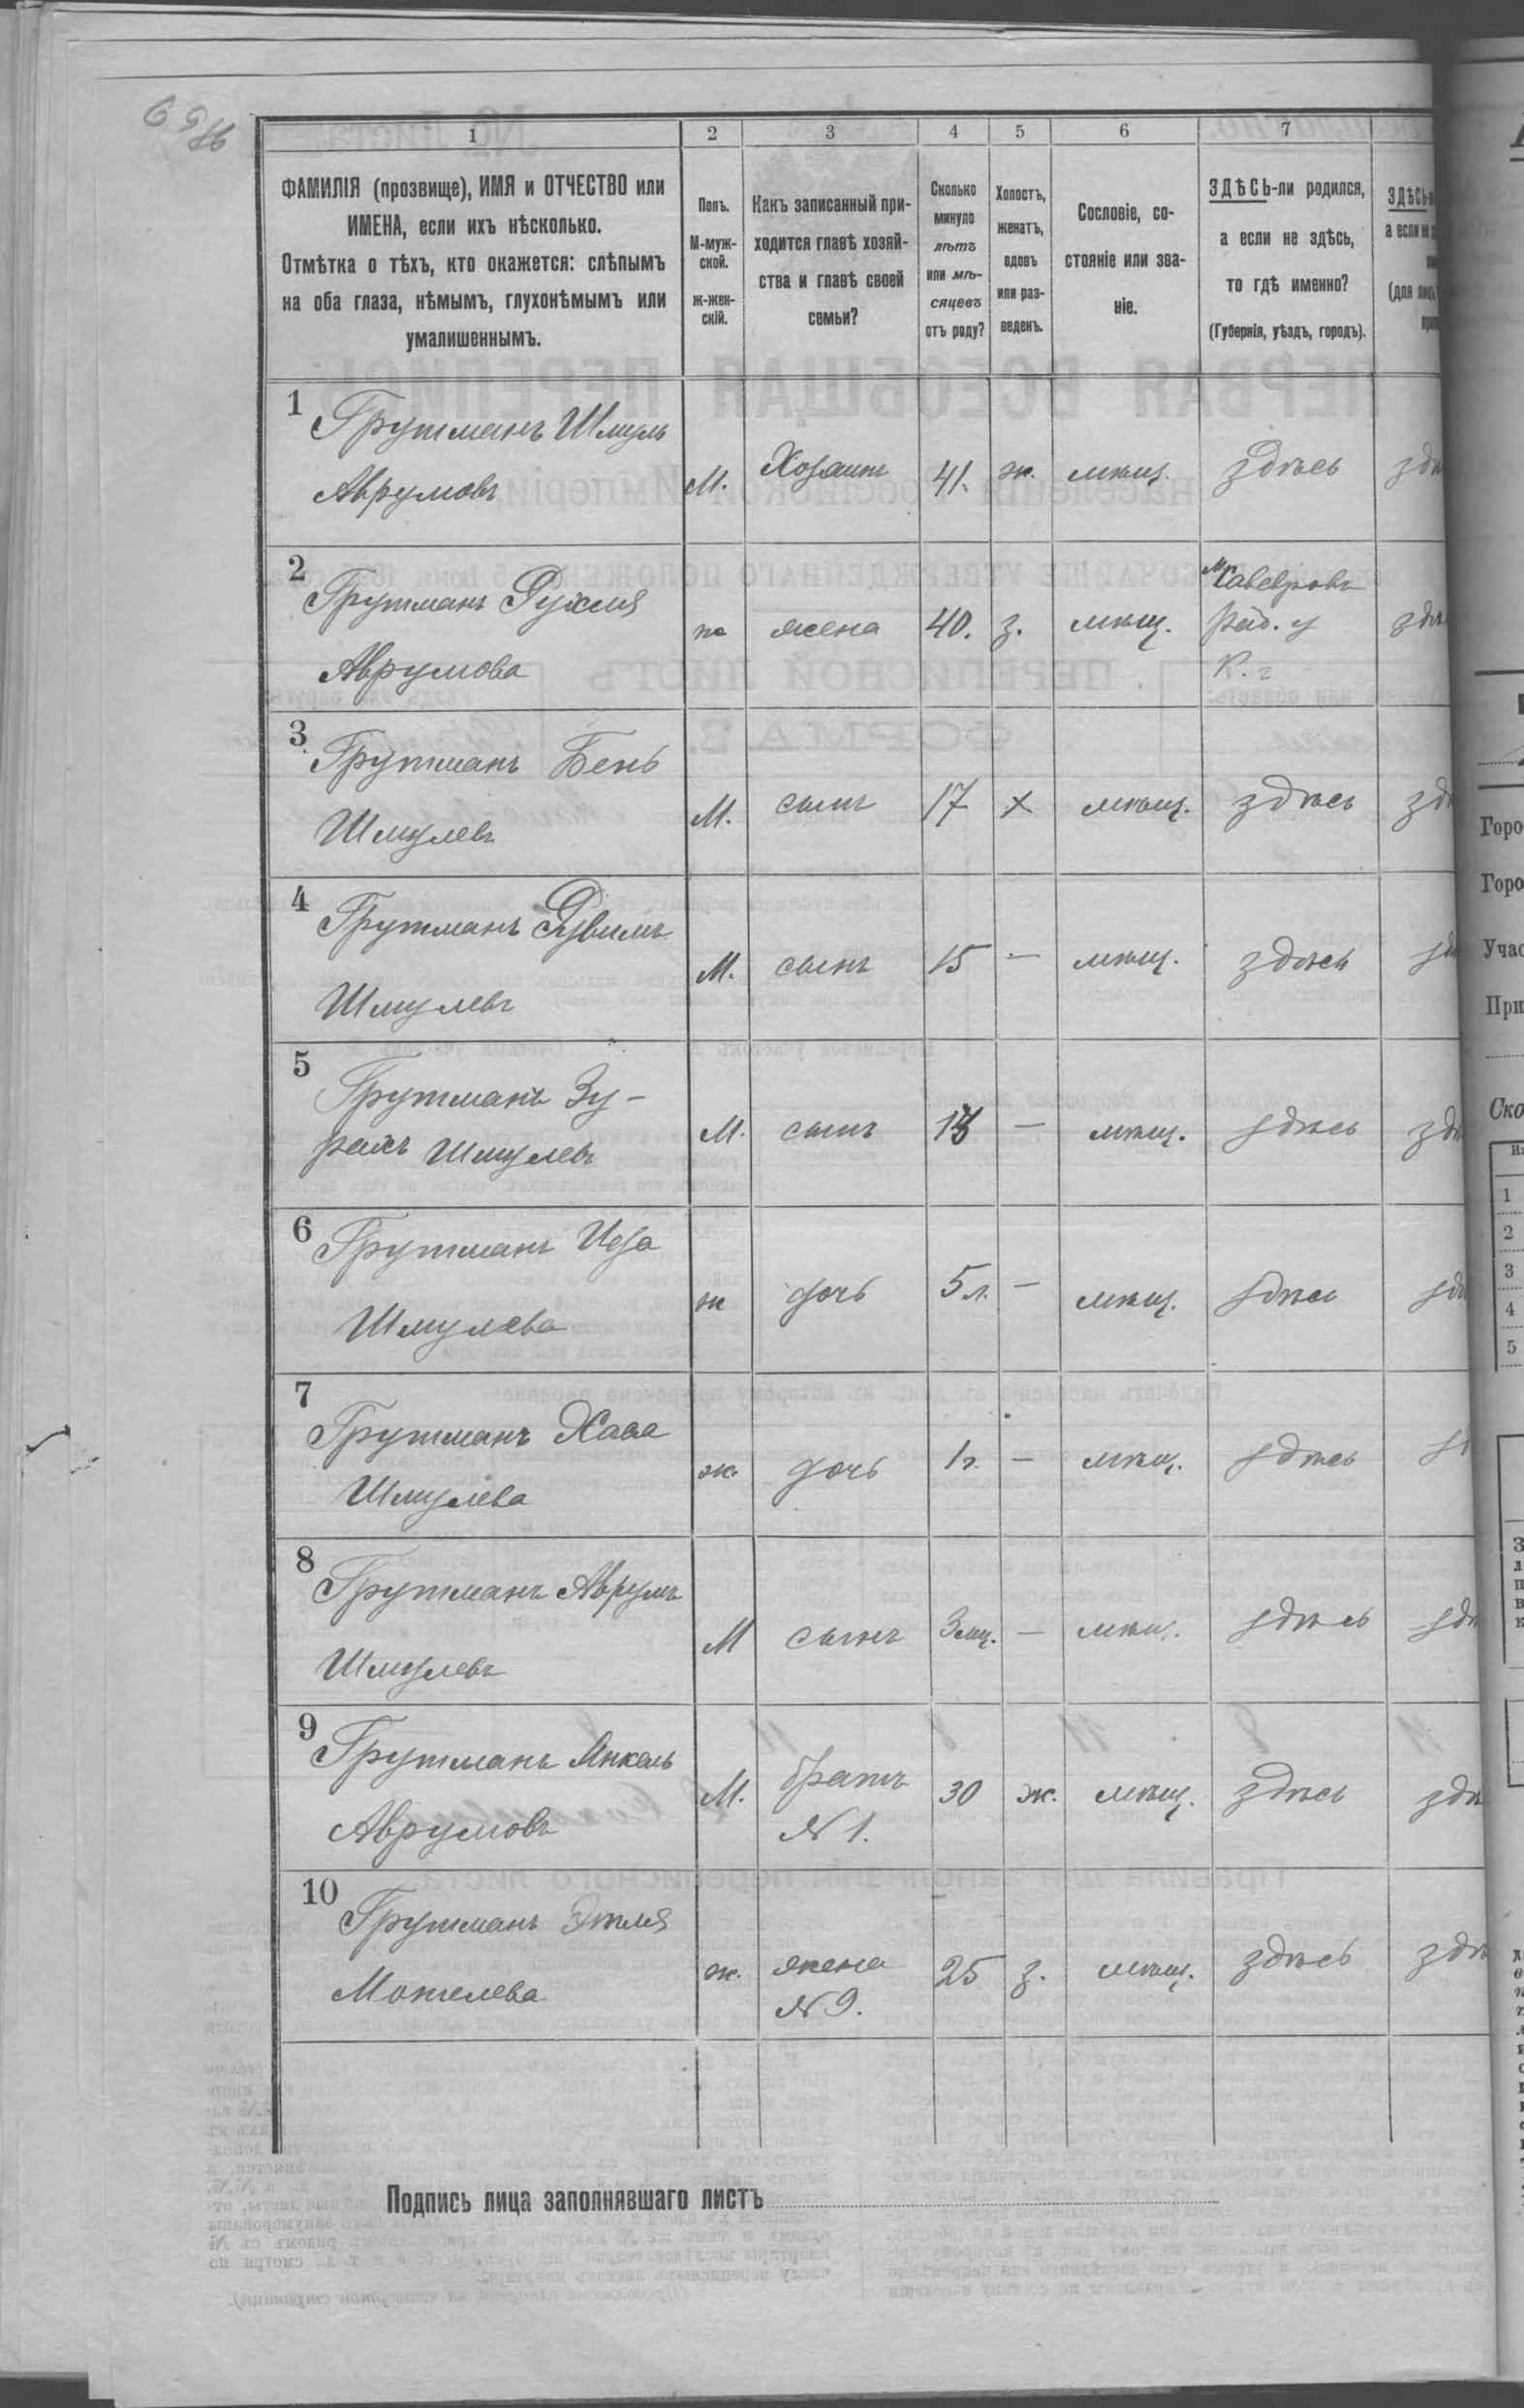 1 2 3 4 5 6 7
ФАМИЛІЯ (прозвище), ИМЯ и ОТЧЕСТВО или
ИМЕНА, если ихъ нѣсколько.
Отмѣтка о тѣхъ, кто окажется: слѣпымъ
на оба глаза, нѣмымъ, глухонѣмымъ или
умалишеннымъ.
Полъ.
М-муж-
ской.
ж-жен-
скій.
Какъ записанный при-
ходится главѣ хозяй-
ства и главѣ своей
семьи?
Сколько
минуло
лѣтъ
или мѣ-
сяцевъ
отъ роду?
Холостъ,
женатъ,
вдовъ
или раз-
веденъ.
Сословіе, со-
стояніе или зва-
ніе.
ЗДѢСЬ-ли родился,
а если не здѣсь,
то гдѣ именно?
(Губернія, уѣздъ, городъ).
ЗДѢСЬ-
а если не
(для лицъ
1 Грутманъ Шмуль
Аврумовъ М. Хозяинъ 41. ж. мѣщ. здѣсь здѣ
2 Грутманъ Рухля
Аврумова ж жена 40. з. мѣщ.
Рад. у
К. г
здѣ
3 Грутманъ Бень
Шмулевъ М. сынъ 17 х мѣщ. здѣсь зд
4 Грутманъ Рувимъ
Шмулевъ М. сынъ 15 — мѣщ. здѣсь зд
5 Грутманъ Зу-
рахъ Шмулевъ М. сынъ 13 — мѣщ. здѣсь зд
6 Грутманъ Ида
Шмулева ж дочь 5 л. — мѣщ. здѣсь зд
7 Грутманъ Хава
Шмулева ж. дочь 1 г. — мѣщ. здѣсь зд
8 Грутманъ Аврумъ
Шмулевъ М сынъ 3 мц. — мѣщ. здѣсь зд
9 Грутманъ Янкель
Аврумовъ М. братъ
N 1. 30 ж. мѣщ. здѣсь здѣ
10 Грутманъ Этля
Мотелева ж. жена
N 9. 25 з. мѣщ. здѣсь здѣ
Подпись лица заполнявшаго листъ
Горо
Горо
Учас
При
Ско
1
2
3
4
5